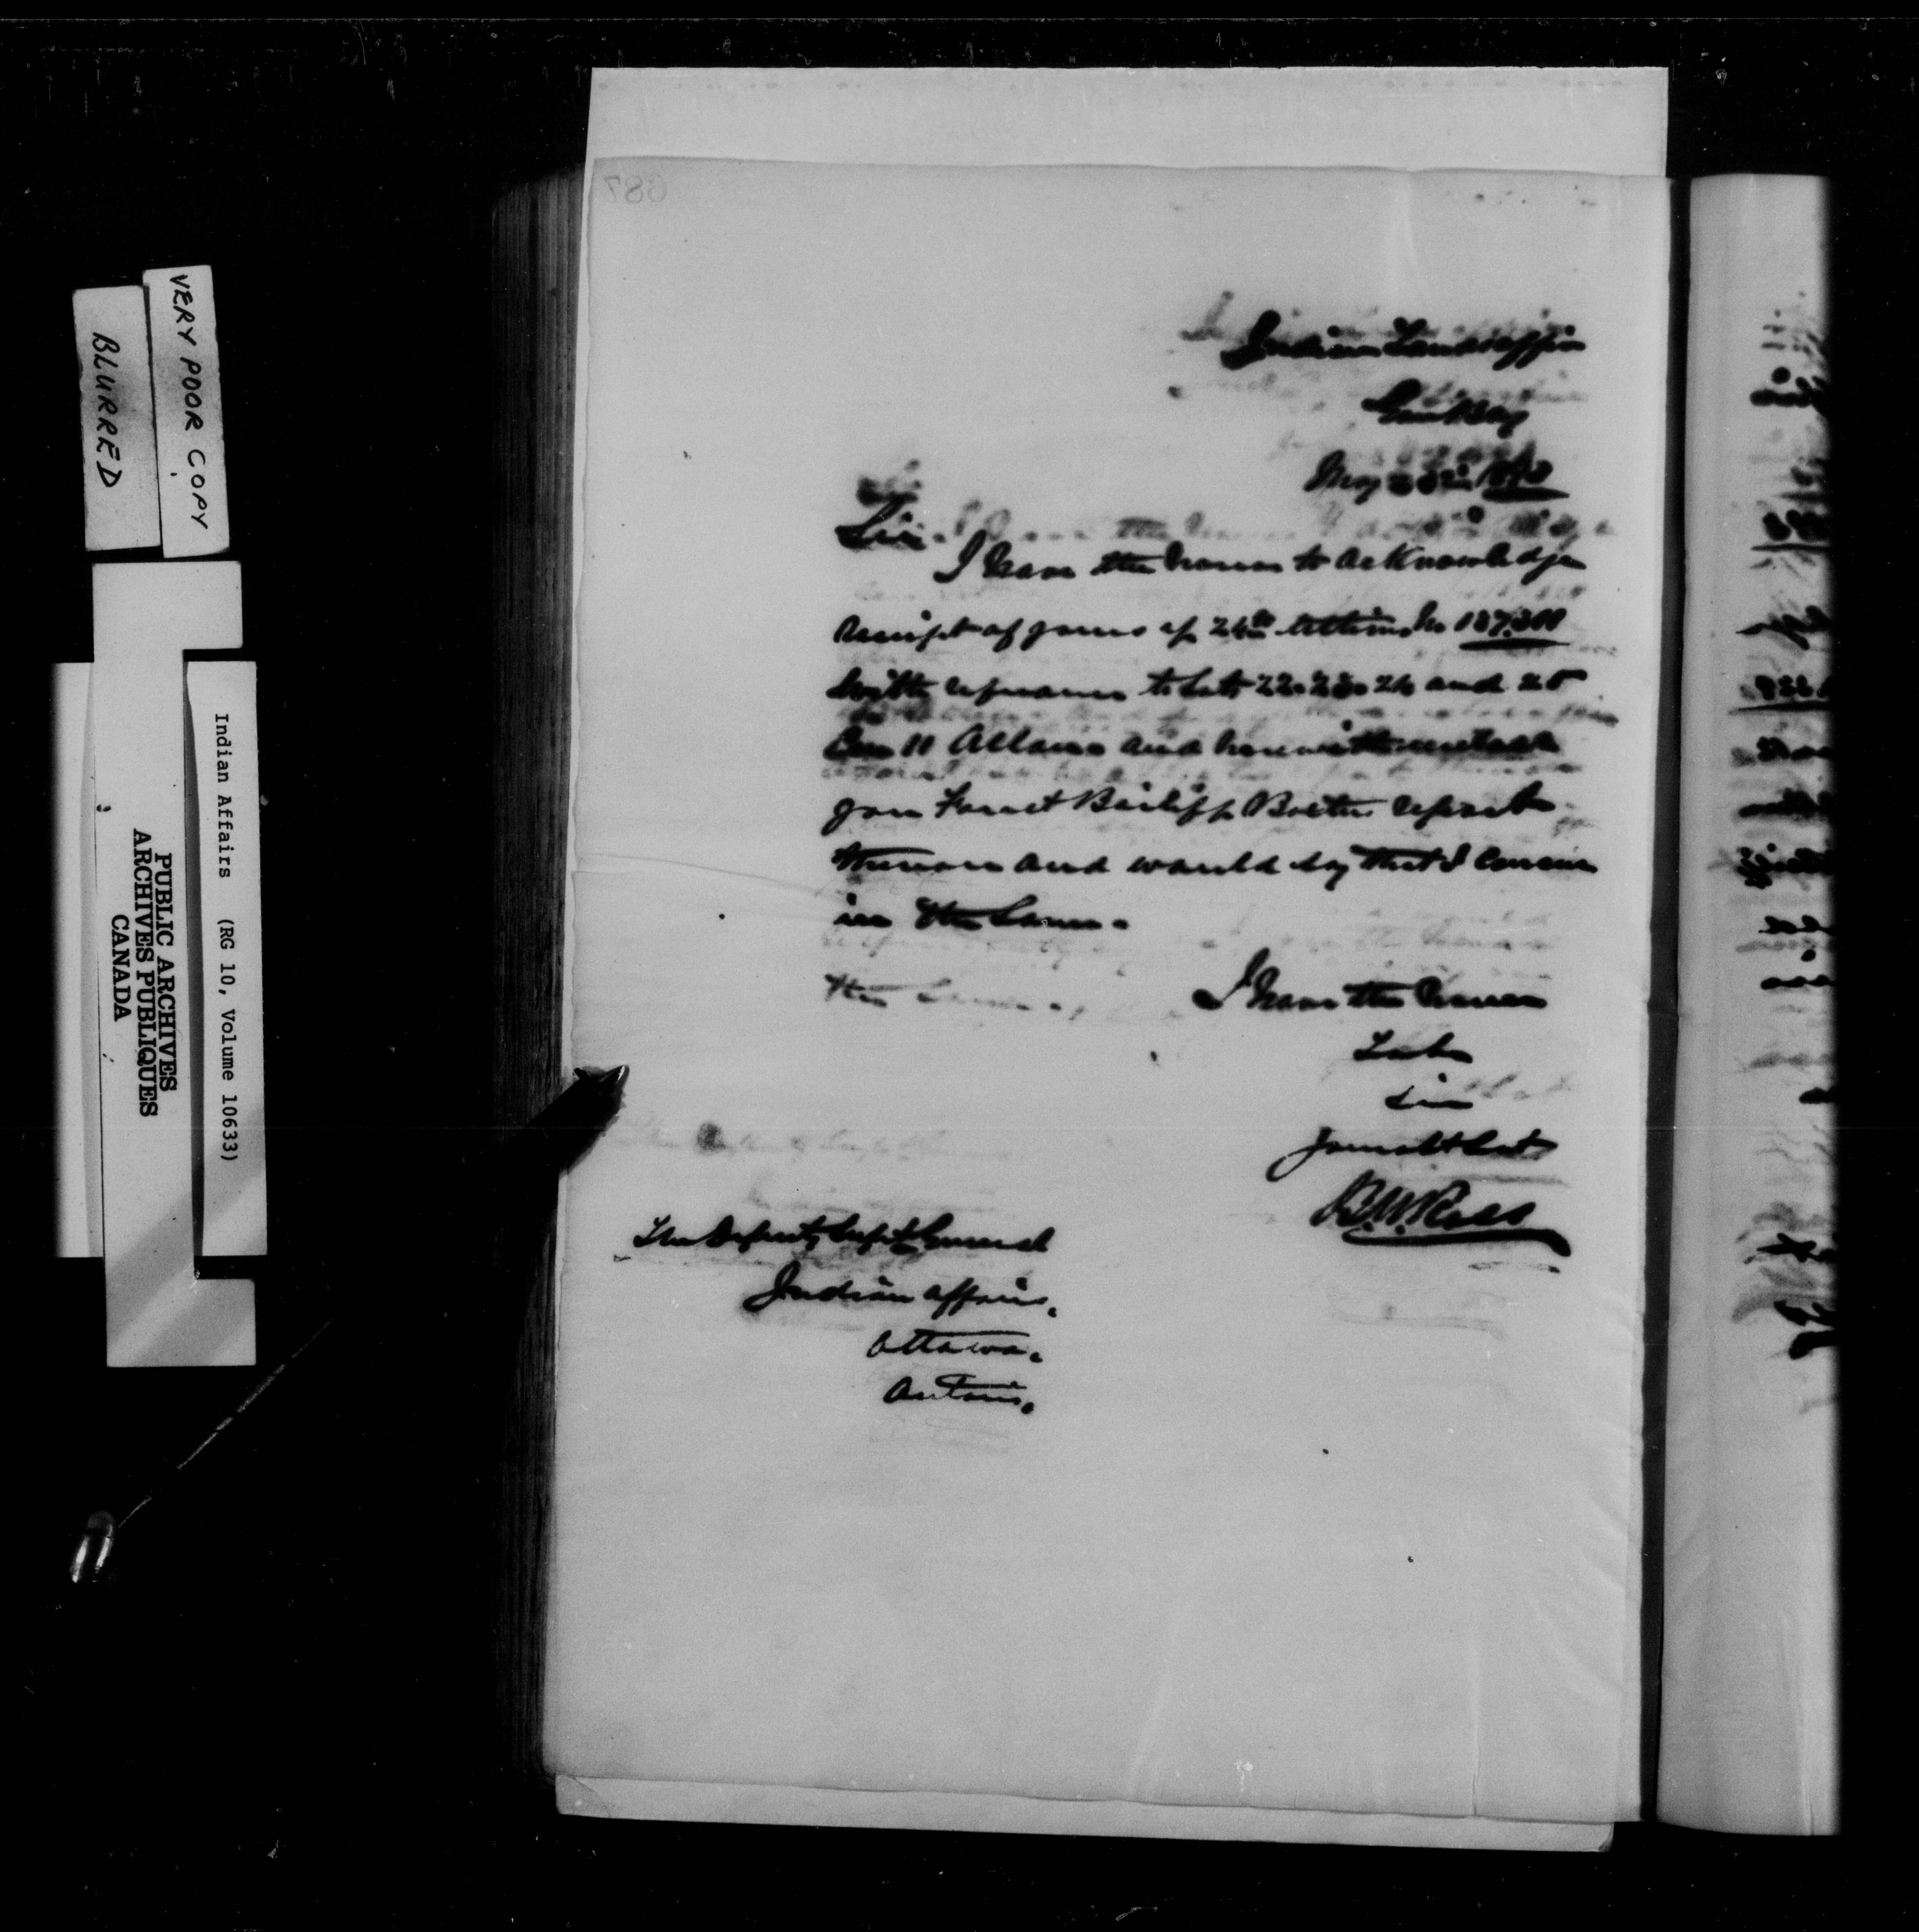 VERY POOR COPY
BLURRED
Indian Affairs (RG 10, Volume 10633)
PUBLIC ARCHIVES
ARCHIVES PUBLIQUES
CANADA
687
Indian Lands Office
Gore Bay
May
Sir.
I have the honor to acknowledge
receipt of yours of 24th letter No
with reference to Lots 22. 23. 24 and 25
Con 11 Allan and herewith enclose
you Forest Bailiff report
thereon and would say that I concur
in the same.
I have the honor
to be
Sir
Your Obt Svt
B.W. Ross
The Deputy Supt General
Indian affairs.
Ottawa.
Ontario.